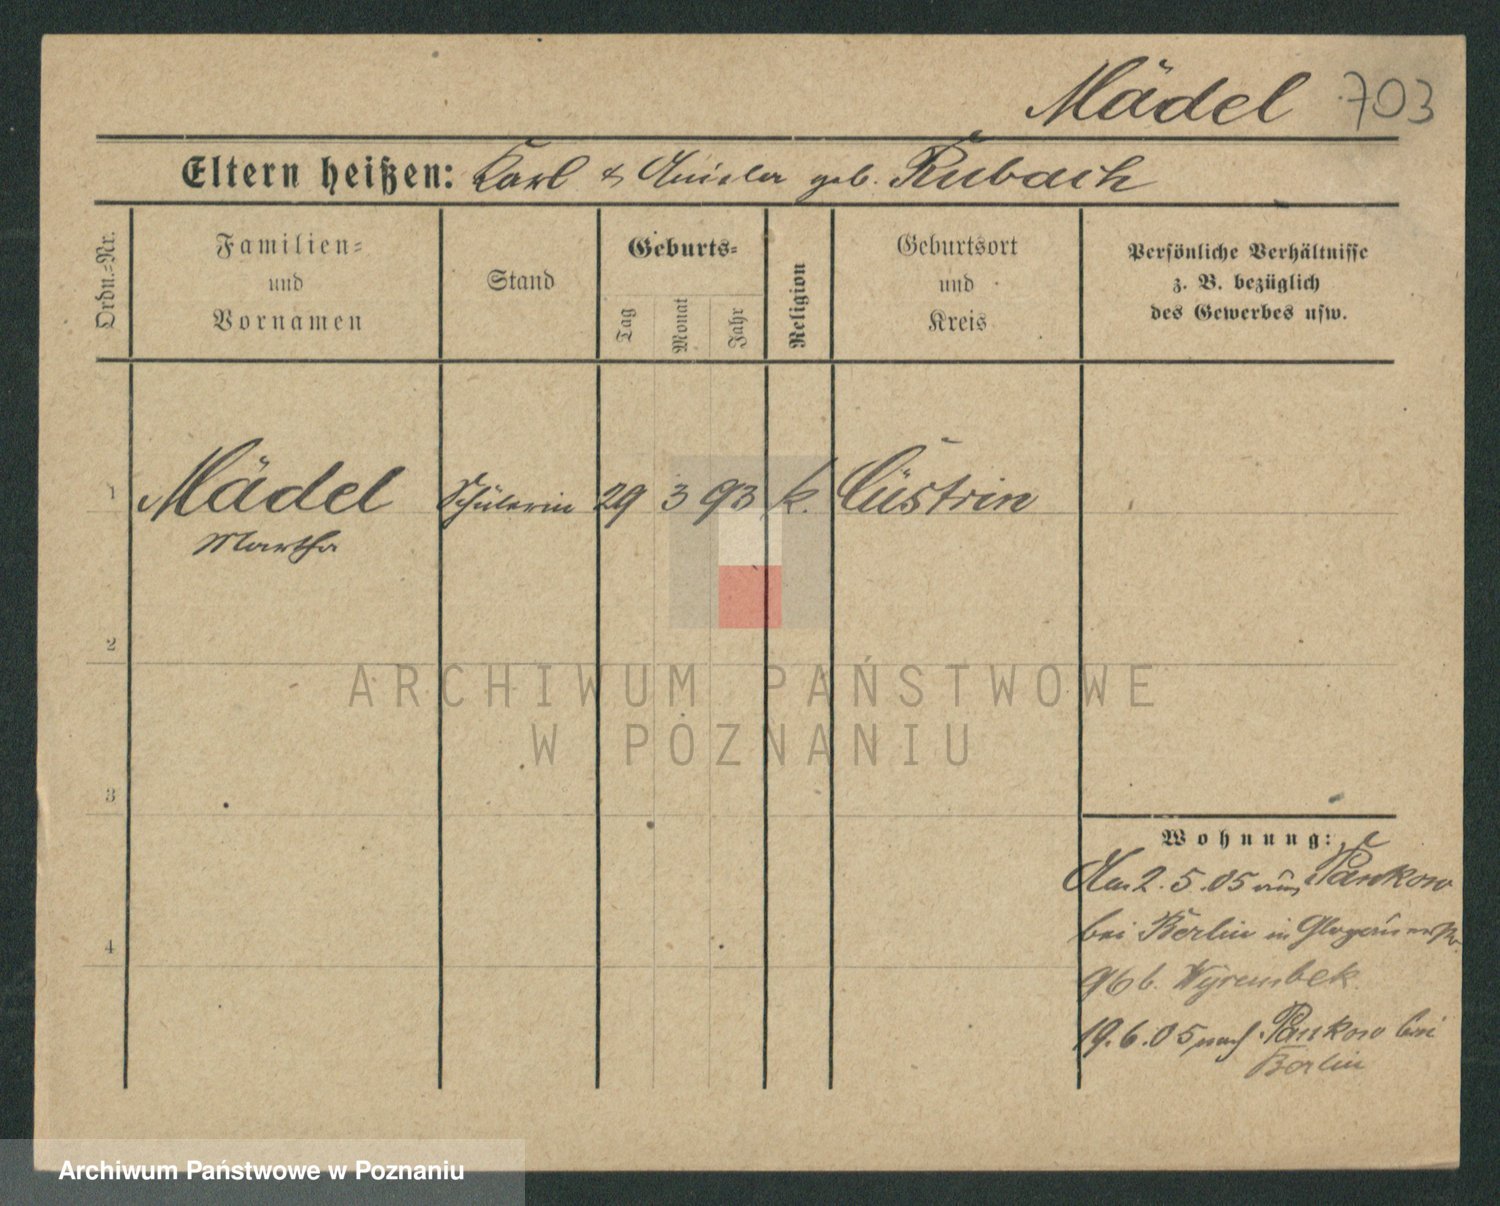 Mädel 703
Eltern heißen: Karl & geb. Rubach
Ordn.-Nr.
Familien-
und
Vornamen
Stand
Geburts-
Tag
Monat
Jahr
Religion
Geburtsort
und
Kreis
Persönliche Verhältnisse
z. B. bezüglich
des Gewerbes usw.
1 Mädel Schülerin 29 3 93 k. Cüstrin
Martha
2
ARCHIWUM PAŃSTWOWE
W POZNANIU
3
Wohnung:
Am 2.5.05 aus Pankow
bei Berlin in Glogauerstr.
96 b. Wyrembek.
4
19.6.05 nach Pankow bei
Berlin
Archiwum Państwowe w Poznaniu